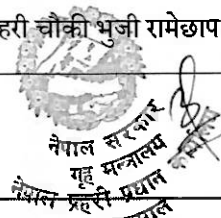 हरी चौकी भुजी रामेछाप
नेपाल सरकार
गृह मन्त्रालय
नेपाल प्रहरी प्रधान